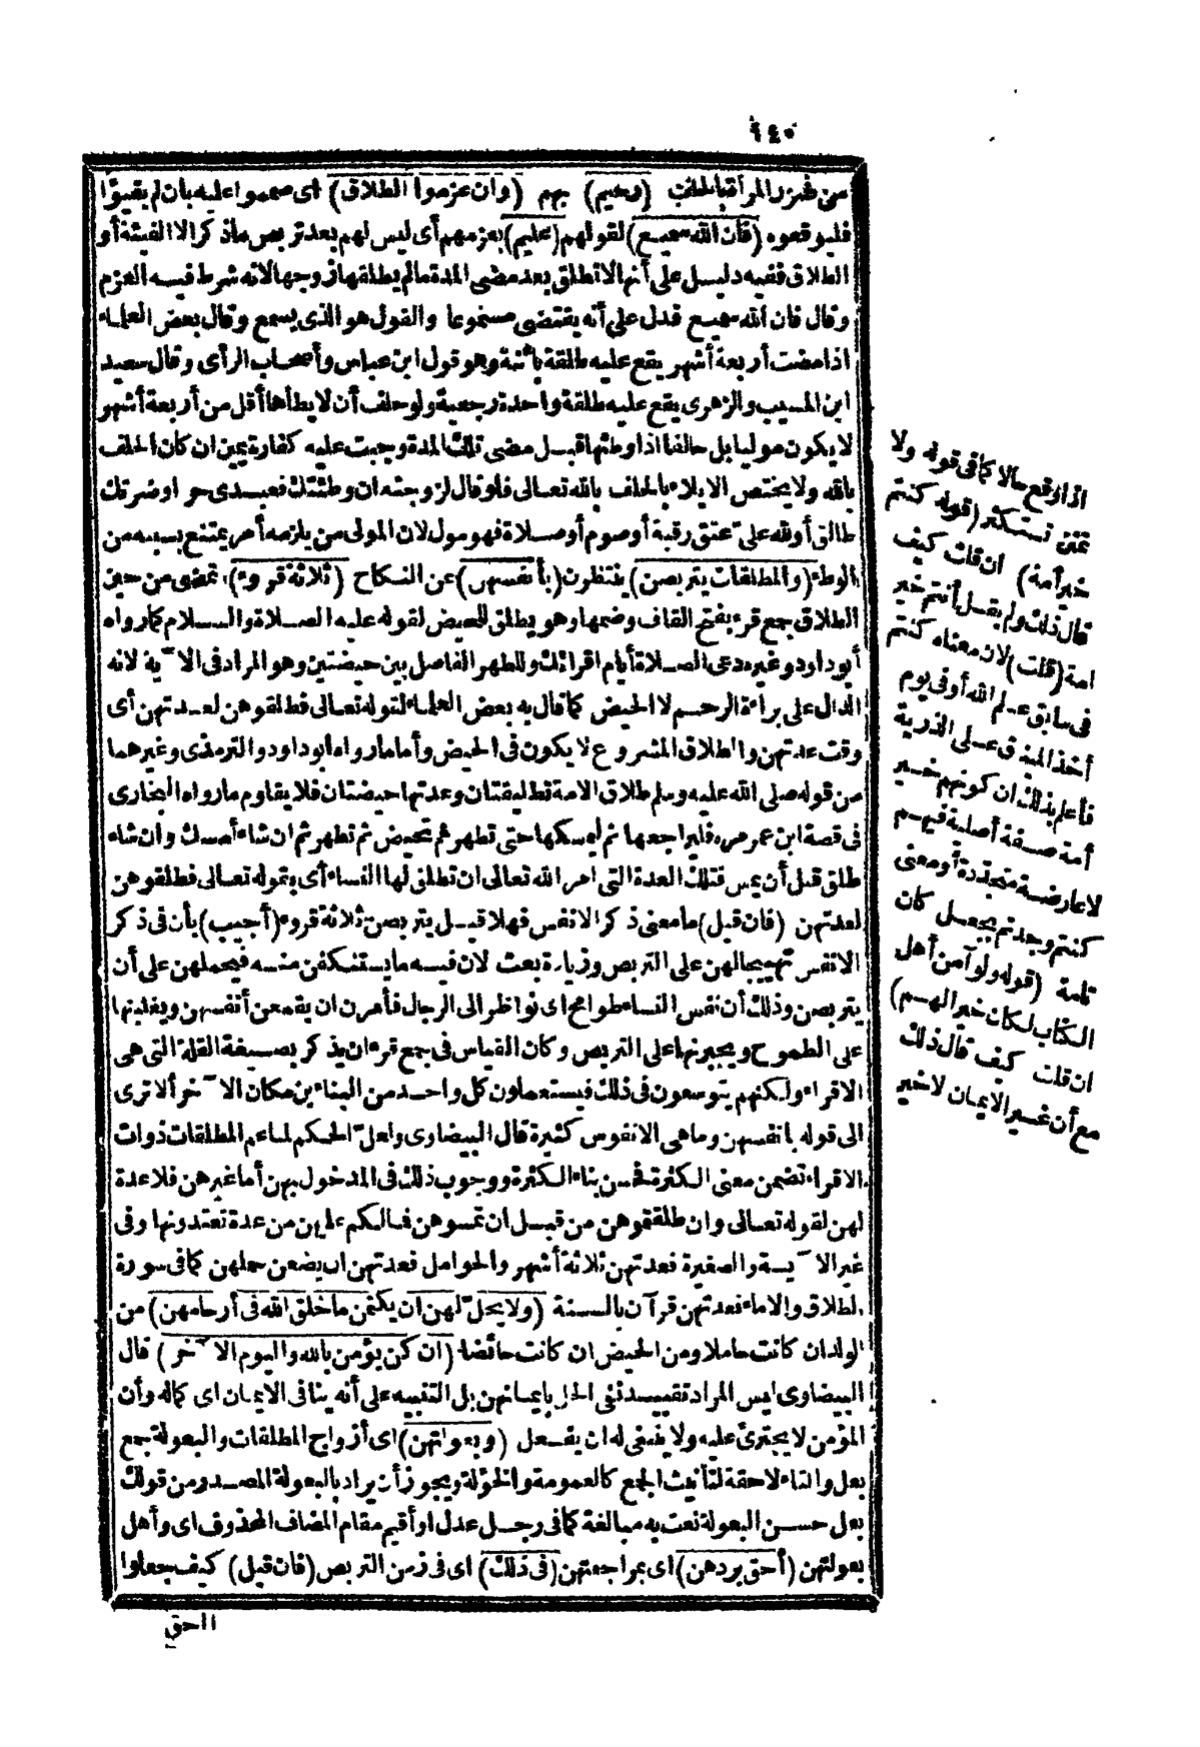 ١٤٥
من ضرر المرأة بالحلف (رحيم) بهم (وان عزموا الطلاق) اى صمموا عليه بان لم يفيؤا
فليوقعوه (فان الله سميع) لقولهم (عليم) بعزمهم أى ليس لهم بعد تربص ماذكر الا الفيئة أو
الطلاق ففيه دليل على أنها لا تطلق بعد مضى المدة مالم يطلقها زوجها لانه شرط فيه العزم
وقال فان الله سميع فدل على أنه يقتضى مسموعا والقول هو الذى يسمع وقال بعض العلماء
اذا مضت أربعة أشهر يقع عليه طلقة بائنة وهو قول ابن عباس وأصحاب الرأى وقال سعيد
ابن المسيب والزهرى يقع عليه طلقة واحدة رجعية ولو حلف أن لا يطأها أقل من أربعة أشهر
لا يكون موليا بل حالفا اذا وطئها قبل مضى تلك المدة وجبت عليه كفارة يمين ان كان الحلف
بالله ولا يختص الايلاء بالحلف بالله تعالى فلو قال لزوجته ان وطئتك فعبدى حر او ضرتك
طالق أو لله علىّ عتق رقبة أو صوم أو صلاة فهو مول لان المولى من يلزمه أمر يمتنع بسببه من
الوطء (والمطلقات يتربصن) ينتظرن (بأنفسهن) عن النكاح (ثلاثة قروء) تمضى من حين
الطلاق جمع قرء بفتح القاف وضمها وهو يطلق للحيض لقوله عليه الصلاة والسلام كما رواه
أبو داود وغيره دعى الصلاة أيام اقرائك وللطهر الفاصل بين حيضتين وهو المراد فى الآية لانه
الدال على براءة الرحم لا الحيض كما قال به بعض العلماء لقوله تعالى فطلقوهن لعدتهن أى
وقت عدتهن والطلاق المشروع لا يكون فى الحيض وأما ما رواه أبو داود والترمذى وغيرهما
من قوله صلى الله عليه وسلم طلاق الامة تطليقتان وعدتها حيضتان فلا يقاوم ما رواه البخارى
فى قصة ابن عمر مره فليراجعها ثم ليمسكها حتى تطهر ثم تحيض ثم تطهر ثم ان شاء أمسك وان شاء
طلق قبل أن يمس فتلك العدة التى امر الله تعالى ان تطلق لها النساء أى بقوله تعالى فطلقوهن
لعدتهن (فان قيل) ما معنى ذكر الانفس فهلا قيل يتربصن ثلاثة قروء (أجيب) بأن فى ذكر
الانفس تهييجا لهن على التربص وزيادة بعث لان فيه ما يستنكفن منه فيحملهن على أن
يتربصن وذلك أن نفس النساء طوامح اى نواظر الى الرجال فأمرن ان يقمعن أنفسهن ويغلبنها
على الطموح ويجبرنها على التربص وكان القياس فى جمع قرء ان يذكر بصيغة القلة التى هى
الاقراء ولكنهم يتوسعون فى ذلك فيستعملون كل واحد من البناءين مكان الآخر ألا ترى
الى قوله بانفسهن وما هى الا نفوس كثيرة قال البيضاوى ولعلّ الحكم لما عم المطلقات ذوات
الاقراء تضمن معنى الكثرة فحسن بناء الكثرة ووجوب ذلك فى المدخول بهن أما غيرهن فلا عدة
لهن لقوله تعالى وان طلقتموهن من قبل ان تمسوهن فمالكم عليهن من عدة تعتدونها وفى
غير الآيسة والصغيرة فعدتهن ثلاثة أشهر والحوامل فعدتهن ان يضعن حملهن كما فى سورة
الطلاق والاماء فعدتهن قرآن بالسنة (ولا يحلّ لهن ان يكتمن ما خلق الله فى أرحامهن) من
الولد ان كانت حاملا ومن الحيض ان كانت حائضا (ان كن يؤمن بالله واليوم الآخر) قال
البيضاوى ليس المراد تقييد نفى الحل بايمانهن بل التنبيه على أنه ينافى الايمان اى كماله وأن
المؤمن لا يجترئ عليه ولا ينبغى له ان يفعل (وبعولتهن) اى أزواج المطلقات والبعولة جمع
بعل والتاء لاحقة لتأنيث الجمع كالعمومة والخؤلة ويجوز أن يراد بالبعولة المصدر من قولك
بعل حسن البعولة نعت به مبالغة كما فى رجل عدل او أقيم مقام المضاف المحذوف اى وأهل
بعولتهن (أحق بردهن) اى بمراجعتهن (فى ذلك) اى فى زمن التربص (فان قيل) كيف جعلوا
احق
اذا ارفع حالا كما فى قوله ولا
تمنن تستكثر (قوله كنتم
خير أمة) ان قلت كيف
قال ذلك ولم يقل أنتم خير
امة (قلت) لان معناه كنتم
فى سابق علم الله أو فى يوم
أخذ الميثاق على الذرية
فأعلم بذلك ان كونهم خير
أمة صفة أصلية فيهم
لا عارضة متجددة أو معنى
كنتم وجدتم بجعل كان
تامة (قوله ولو آمن أهل
الكتاب لكان خيرا لهم)
ان قلت كيف قال ذلك
مع أن غير الايمان لا خير